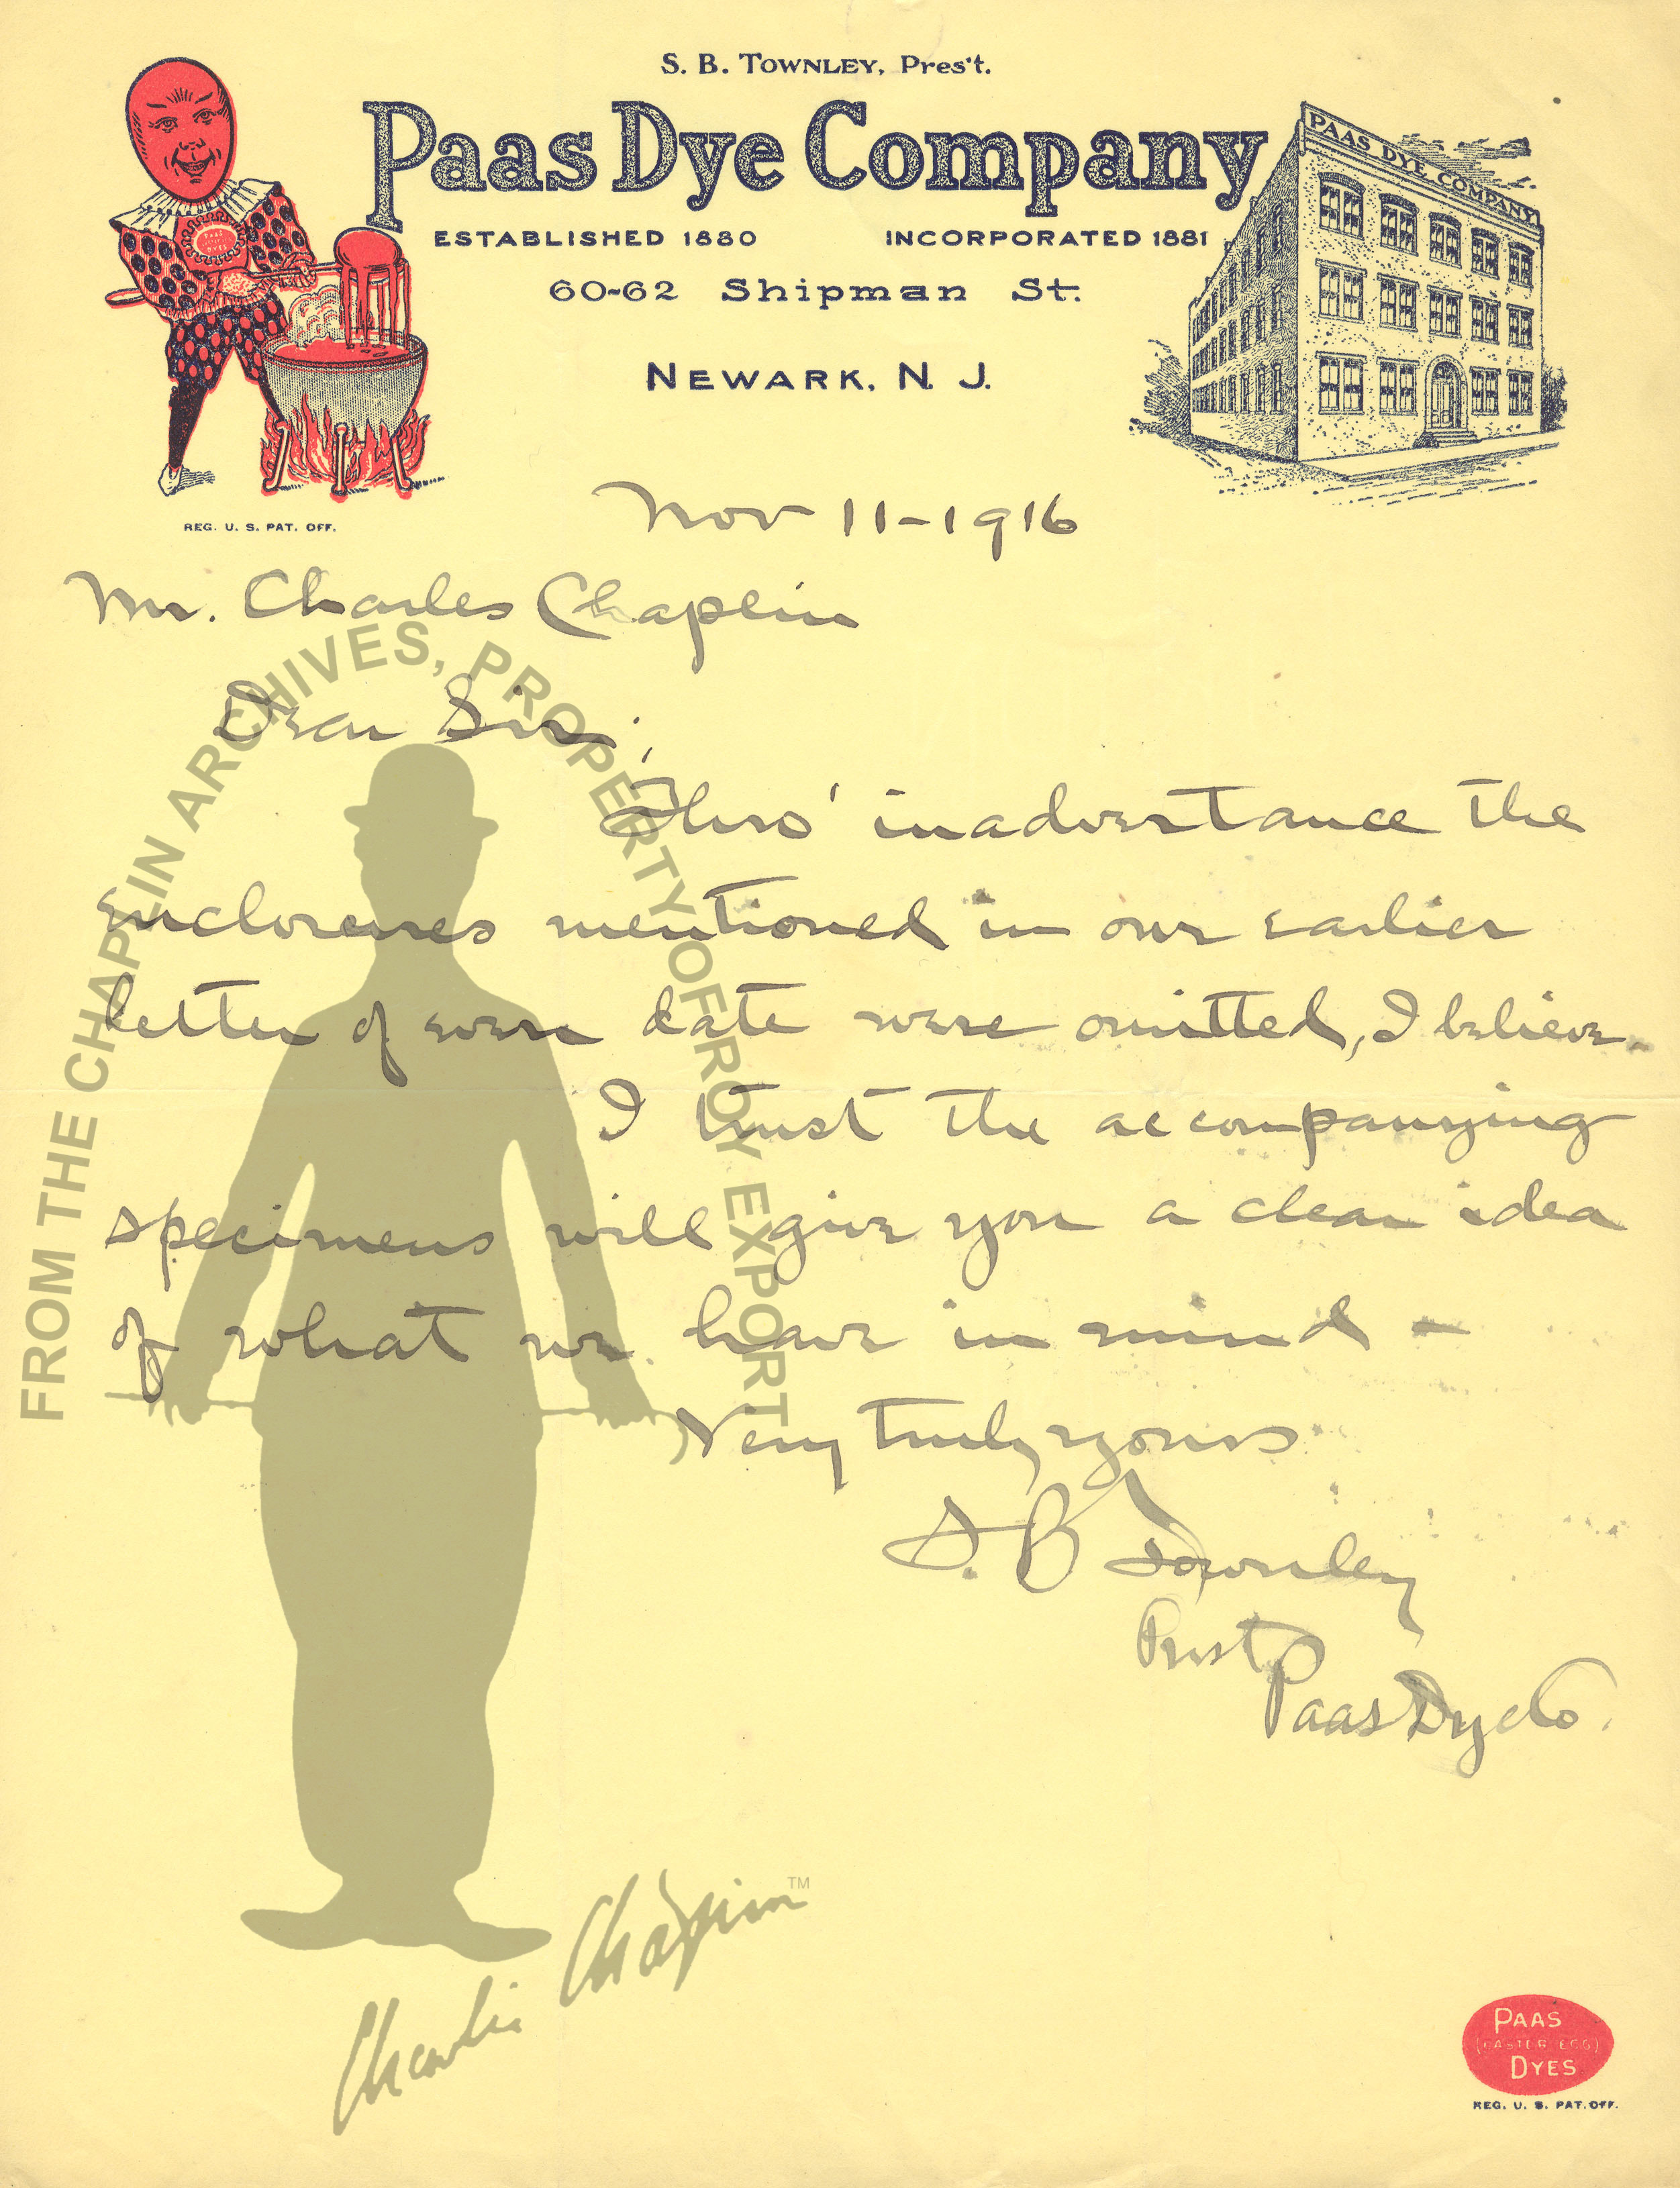 S. B. TOWNLEY, Pres't.
Paas Dye Company
ESTABLISHED 1880 INCORPORATED 1881
60-62 Shipman St.
NEWARK, N. J.
PAAS DYE COMPANY
PAAS
DYES
REG. U. S. PAT. OFF.
Nov 11-1916
Mr. Charles Chaplin
Dear Sir;
Thro' inadvertance the
enclosures mentioned in our earlier
letter of even date were omitted, I believe.
I trust the accompanying
specimens will give you a clear idea
of what we have in mind -
Very truly yours
S. B Townley
Prest
Paas Dye Co.
FROM THE CHAPLIN ARCHIVES, PROPERTY OF ROY EXPORT
Charlie Chaplin TM
PAAS
(EASTER EGG)
DYES
REG. U. S. PAT. OFF.